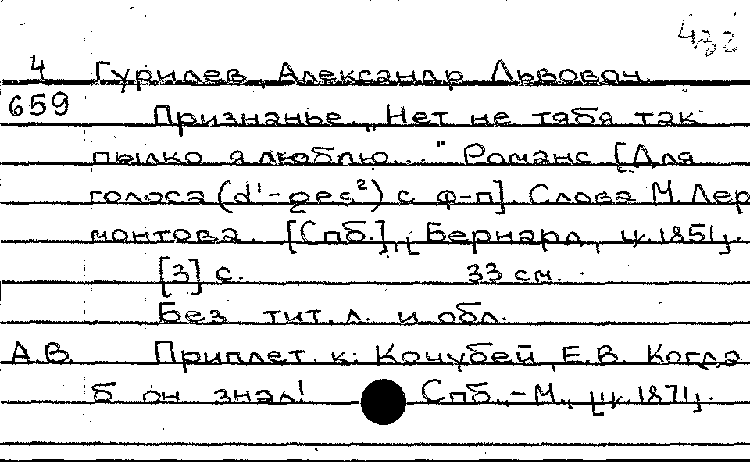 432
4 Гурилев, Александр Львович
659 Признанье. „Нет не тебя так
пылко я люблю..." Романс [Для
голоса (d'-ges²) с ф-п]. Слова М. Лер
монтова. [Спб.], [Бернард, ц. 1851].
[3] с. 33 см.
Без тит. л. и обл.
А.В. Приплет. к: Кочубей, Е.В. Когда
б он знал! Спб.,-М., [ц. 1871].